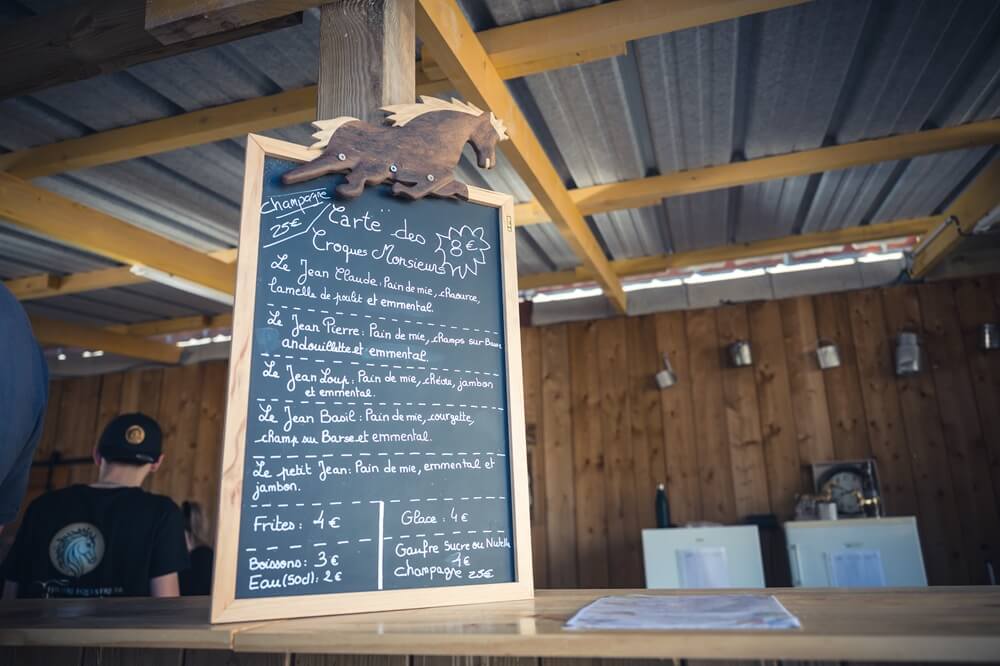 Champagne
25€
Carte des
Croques Monsieur
8€
Le Jean Claude: Pain de mie, chaource,
lamelle de poulet et emmental.
Le Jean Pierre: Pain de mie, champs sur Barse
andouillette et emmental.
Le Jean Loup: Pain de mie, chèvre, jambon
et emmental.
Le Jean Basil: Pain de mie, courgette,
champ su Barse et emmental.
Le petit Jean: Pain de mie, emmental et
jambon.
Frites: 4€
Boissons: 3€
Eau(50cl): 2€
Glace: 4€
Gaufre Sucre ou Nutella
4€
champagne 25€